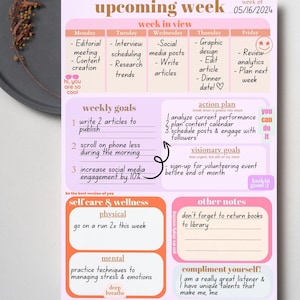 upcoming week
week of
05/16/2024
week in view
Monday Tuesday Wednesday Thursday Friday
- Editorial
meeting
- Content
creation
- Interview
scheduling
- Research
trends
-Social
media posts
- Write
articles
- Graphic
design
- Edit
article
- Dinner
date!♡
- Review
analytics
- Plan next
week
hi,
you are
so cool
weekly goals
1 write 2 articles to
publish
2 scroll on phone less
during the morning
3 increase social media
engagement by 10%
action plan
1 analyze current performance
2 plan content calendar
3 schedule posts & engage with
followers
you
can
do
it
visionary goals
- sign-up for volunteering event
before end of month
be the best version of you
self care & wellness
physical
go on a run 2x this week
mental
practice techniques to
managing stress & emotions
deep
breaths
other notes
don't forget to return books
to library
compliment yourself!
I am a really great listener &
I have unique talents that
make me, me